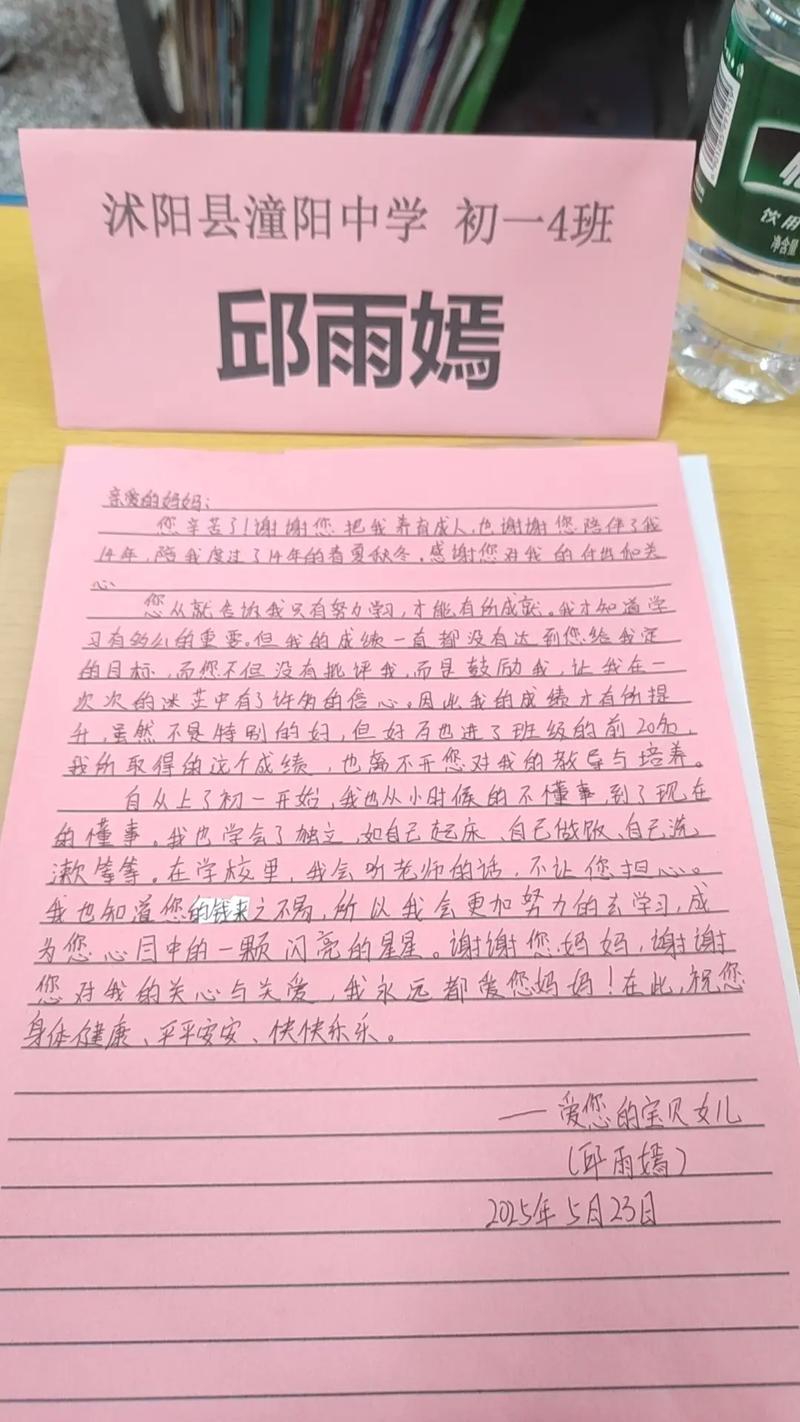 沭阳县潼阳中学 初一4班
邱雨嫣
饮用
净含量
亲爱的妈妈：
您辛苦了！谢谢您把我养育成人，也谢谢您陪伴了我
14年，陪我度过了14年的春夏秋冬。感谢您对我的付出和关
心
您从就告诉我只有努力学习，才能有所成就。我才知道学
习有多么的重要。但我的成绩一直都没有达到您给我定
的目标，而您不但没有批评我，而是鼓励我，让我在一
次次的迷茫中有了许多的信心。因此我的成绩才有所提
升，虽然不是特别的好，但好歹也进了班级的前20名，
我所取得的这个成绩，也离不开您对我的教导与培养。
自从上了初一开始，我也从小时候的不懂事，到了现在
的懂事。我也学会了独立，如自己起床、自己做饭、自己洗
漱等等。在学校里，我会听老师的话，不让您担心。
我也知道您的钱来之不易，所以我会更加努力的去学习，成
为您心目中的一颗闪亮的星星。谢谢您，妈妈，谢谢
您对我的关心与关爱，我永远都爱您妈妈！在此，祝您
身体健康、平平安安、快快乐乐。
——爱您的宝贝女儿
（邱雨嫣）
2025年5月23日